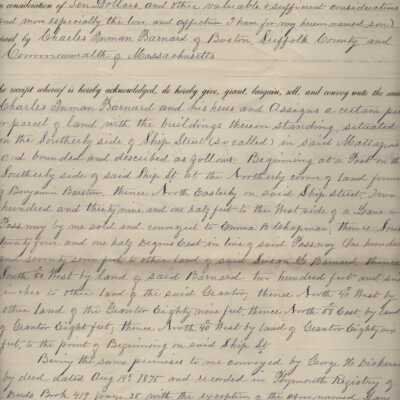 consideration of Ten Dollars and other valuable & sufficient considerations
and more especially the love and affection I have for my herein named son
paid by Charles Inman Barnard of Boston, Suffolk County and
Commonwealth of Massachusetts
the receipt whereof is hereby acknowledged, do hereby give, grant, bargain, sell, and convey unto the said
Charles Inman Barnard and his heirs and Assigns a certain piece
or parcel of land, with the buildings thereon standing, situated
on the Southerly side of Ship Street (so called) in said Mattapoisett
and bounded and described as follows. Beginning at a Post on the
Southerly side of said Ship St at the Northerly corner of land formerly
of Benjamin Barstow, thence North Easterly on said Ship Street, Two
hundred and thirty nine and one half feet to the West side of a Lane or
Passway by me sold and conveyed to Emma B Chapman; thence South
twenty five and one half degrees East in line of said Passway One hundred
and seventy feet to other land of said Susan G Barnard, thence
South 60 West by land of said Barnard two hundred feet and six
inches to other land of the said Grantor, thence North 40 West by
other land of the Grantor Eighty nine feet, thence North 58 East by land
of Grantor Eight feet, thence North 40 West by land of Grantor Eighty six
feet, to the point of Beginning on said Ship St
Being the same premises to me conveyed by George H Dickerson
by deed dated Aug 19th 1875 and recorded in Plymouth Registry of
Deeds Book 417 page 25 with the exception of the above named Lane